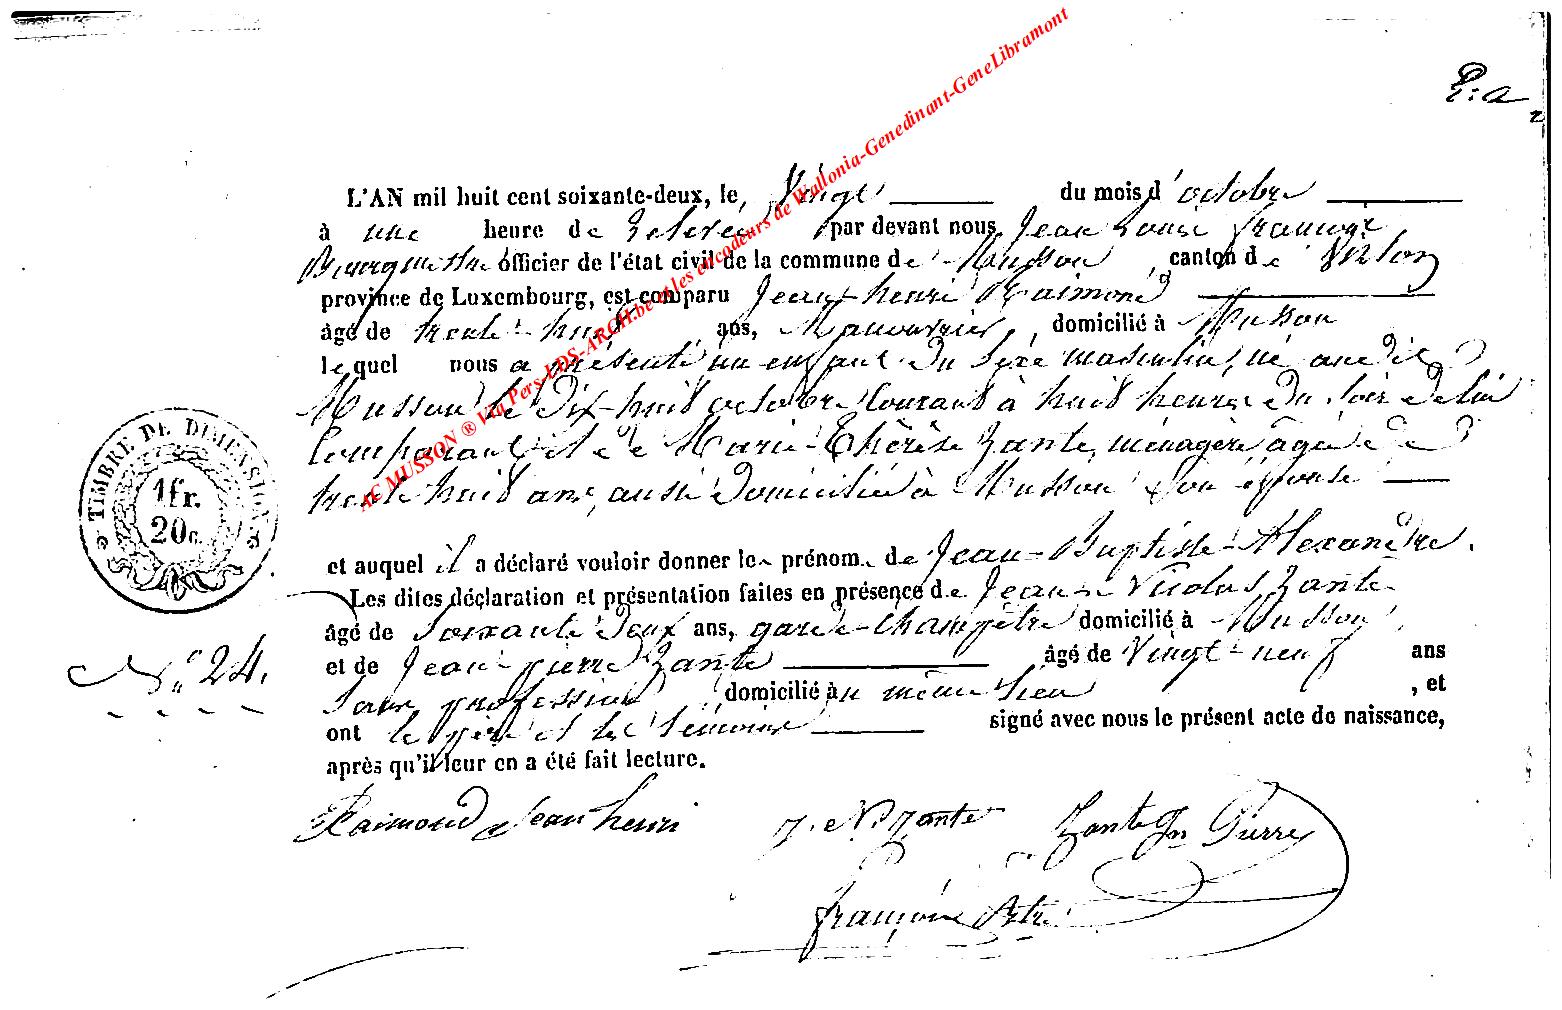 E: a
L'AN mil huit cent soixante-deux, le, Vingt du mois d'octobre
à une heure de relevée par devant nous, Jean Louis françois
Bourgmestre officier de l'état civil de la commune de Musson, canton de Virton
province de Luxembourg, est comparu Jean-henri Raimond
âgé de trente-huit ans, Manouvrier, domicilié à Musson
lequel nous a présenté un enfant du sexe masculin, né audit
Musson le Dix-huit octobre Courant à huit heures du soir de lui
Comparant et de Marie-Thérèse Zante, ménagère âgée de
trente huit ans, aussi domiciliée à Musson son épouse
et auquel il a déclaré vouloir donner les prénoms de Jean-Baptiste-Alexandre.
Les dites déclaration et présentation faites en présence de Jean-Nicolas Zante
âgé de Soixante Deux ans, garde-champêtre domicilié à Musson,
et de Jean-pierre Zante âgé de Vingt-neuf ans
Sans profession, domicilié au même lieu, et
ont le père et les témoins signé avec nous le présent acte de naissance,
après qu'il leur en a été fait lecture.
TIMBRE DE DIMENSION
1fr.
20c.
N° 24.
Raimond Jean henri J. N. Zante Zante Jn Pierre
françois
AC MUSSON ® Via Pers-LDS-ARCH.be et les encodeurs de Wallonia-Genedinant-GeneLibramont